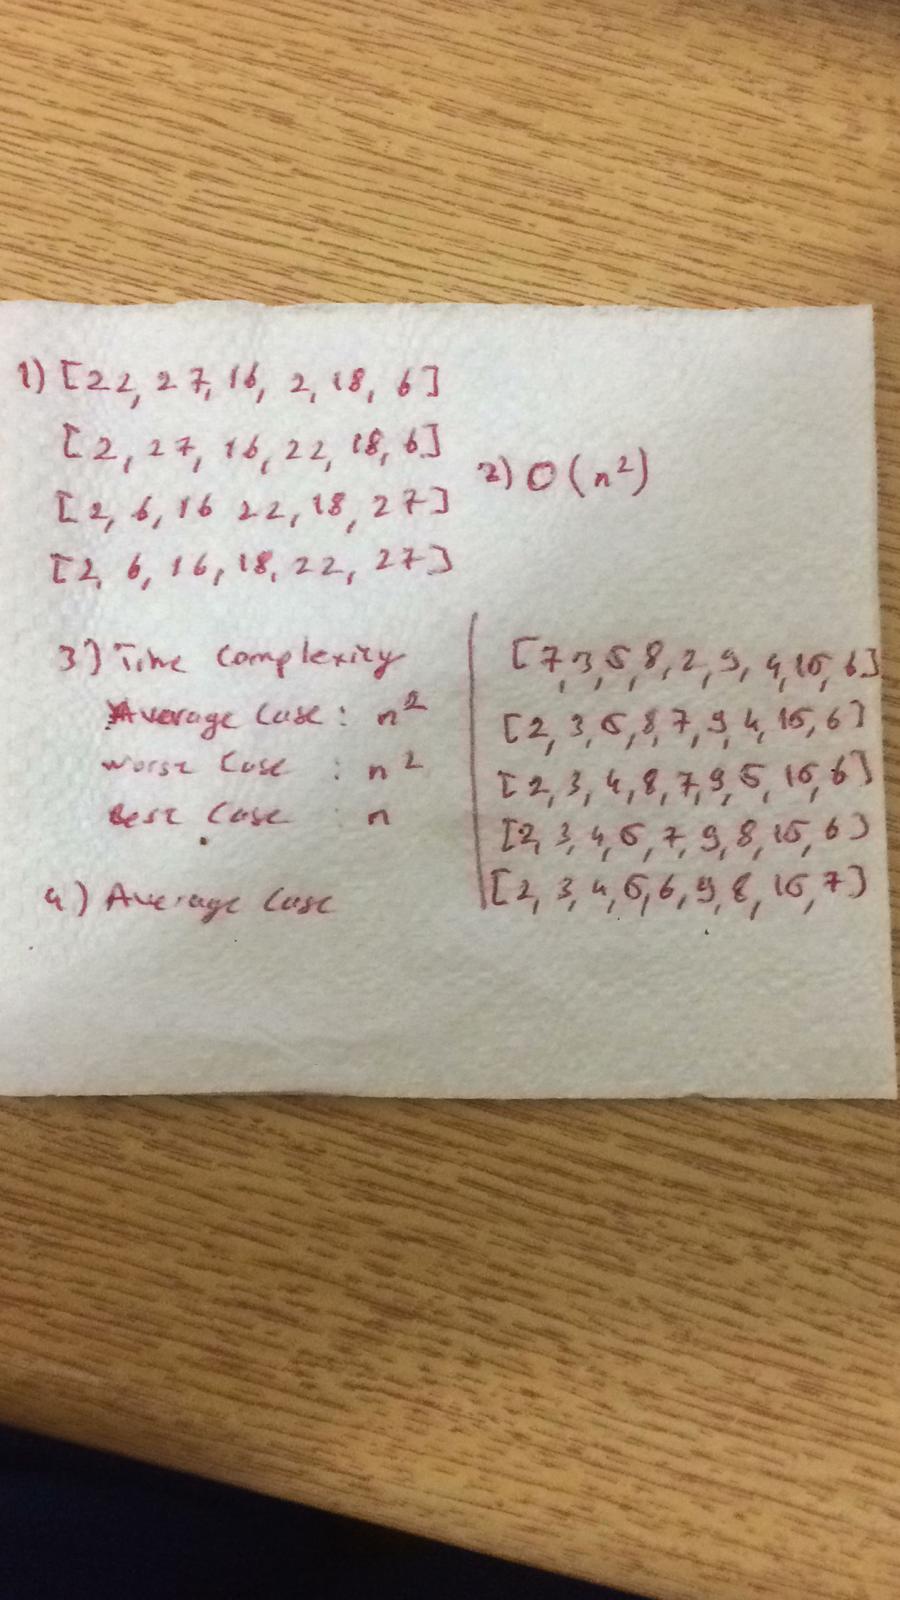 1) [22, 27, 16, 2, 18, 6]
[2, 27, 16, 22, 18, 6]
[2, 6, 16 22, 18, 27]
[2, 6, 16, 18, 22, 27]
2) O(n²)
3) Time Complexity
Average Case: n²
Worst Case : n²
Best Case : n
4) Average Case
[7,3,5,8,2,9,4,15,6]
[2,3,5,8,7,9,4,15,6]
[2,3,4,8,7,9,5,15,6]
[2,3,4,5,7,9,8,15,6)
[2,3,4,5,6,9,8,15,7]